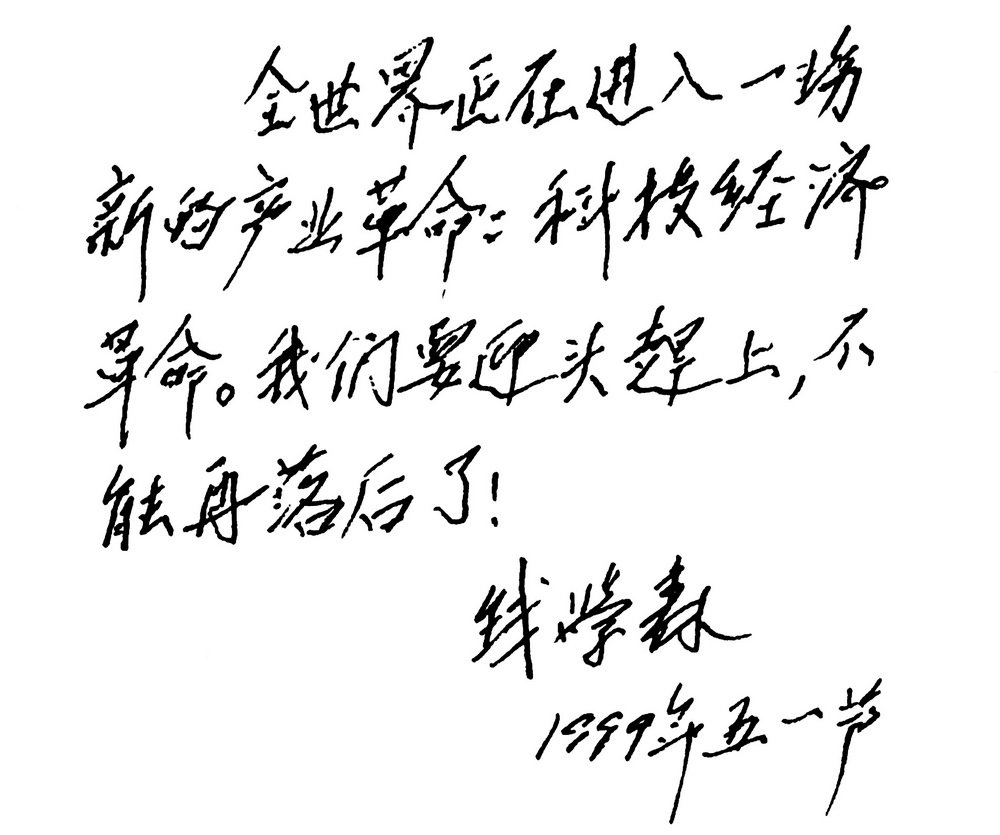 全世界正在进入一场
新的产业革命：科技经济
革命。我们要迎头赶上，不
能再落后了！
钱学森
1999年五一节